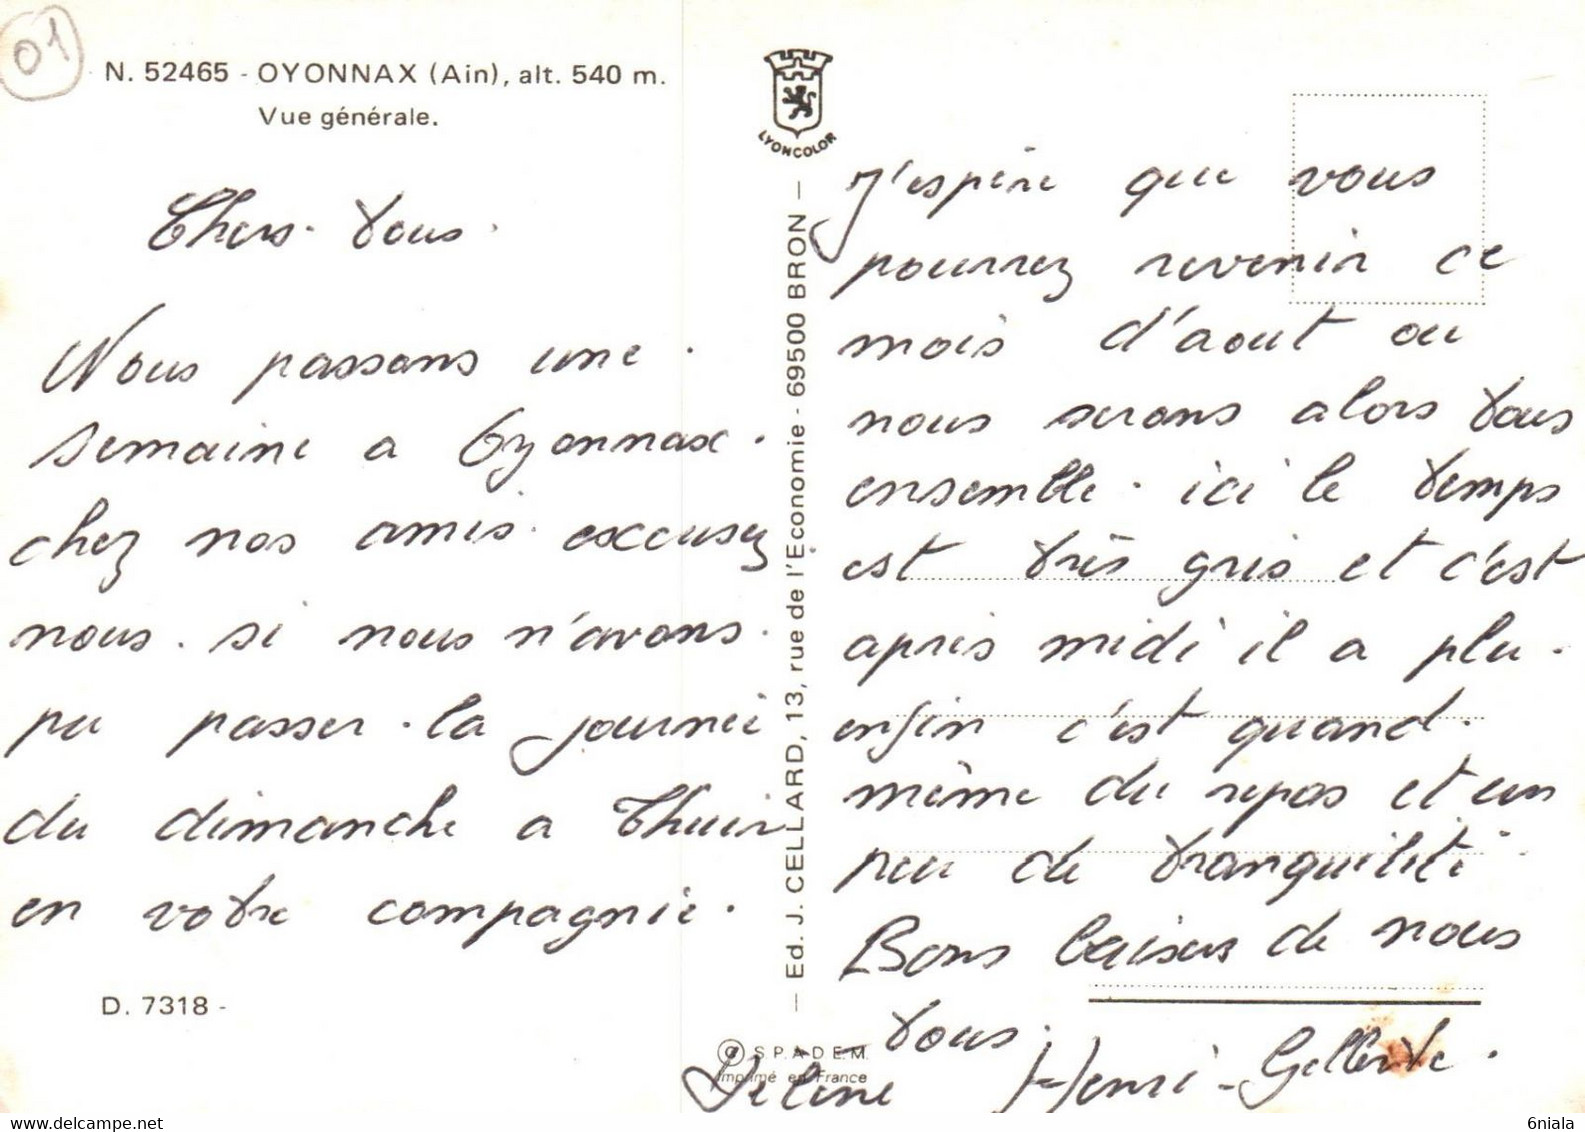 01
N. 52465 - OYONNAX (Ain), alt. 540 m.
Vue générale.
Chers. Tous.
Nous passons une.
semaine a Oyonnax.
chez nos amis. excusez
nous. si nous n'avons.
pu passer. la journée
du dimanche a Thuir
en votre compagnie.
D. 7318 -
LYONCOLOR
— Ed. J. CELLARD, 13, rue de l'Économie - 69500 BRON —
© S.P.A.D.E.M.
Imprimé en France
J'espère que vous
pourrez revenir ce
mois d'aout ou
nous serons alors tous
ensemble. ici le temps
est très gris et c'est
après midi il a plu.
enfin c'est quand.
même du repos et un
peu de tranquilité
Bons baisers de nous
tous.
Henri -
delcampe.net
6niala